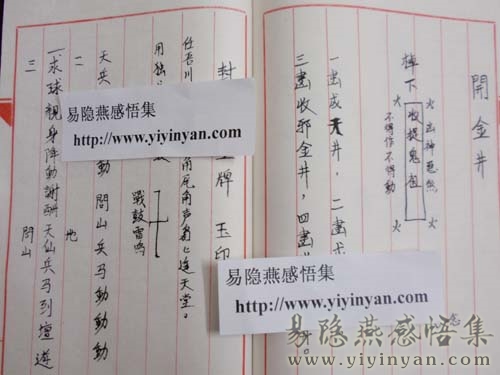 開金井
火 出神惡煞 火
棹下 收捉鬼包
火 不得作不得動 火
一畫成 井，二畫
三畫收邪金井，四畫
念
。
封 牌 玉印
任吾川 角声角匕连天堂。
用独
戰鼓雷鳴
天兵 動 閭山兵马動動動
一求球親身降動謝酬天仙兵马到壇遊
二 地
三 閭山
易隐燕感悟集
http://www.yiyinyan.com
易隐燕感悟集
http://www.yiyinyan.com
易隐燕感悟集
www.yiyinyan.com